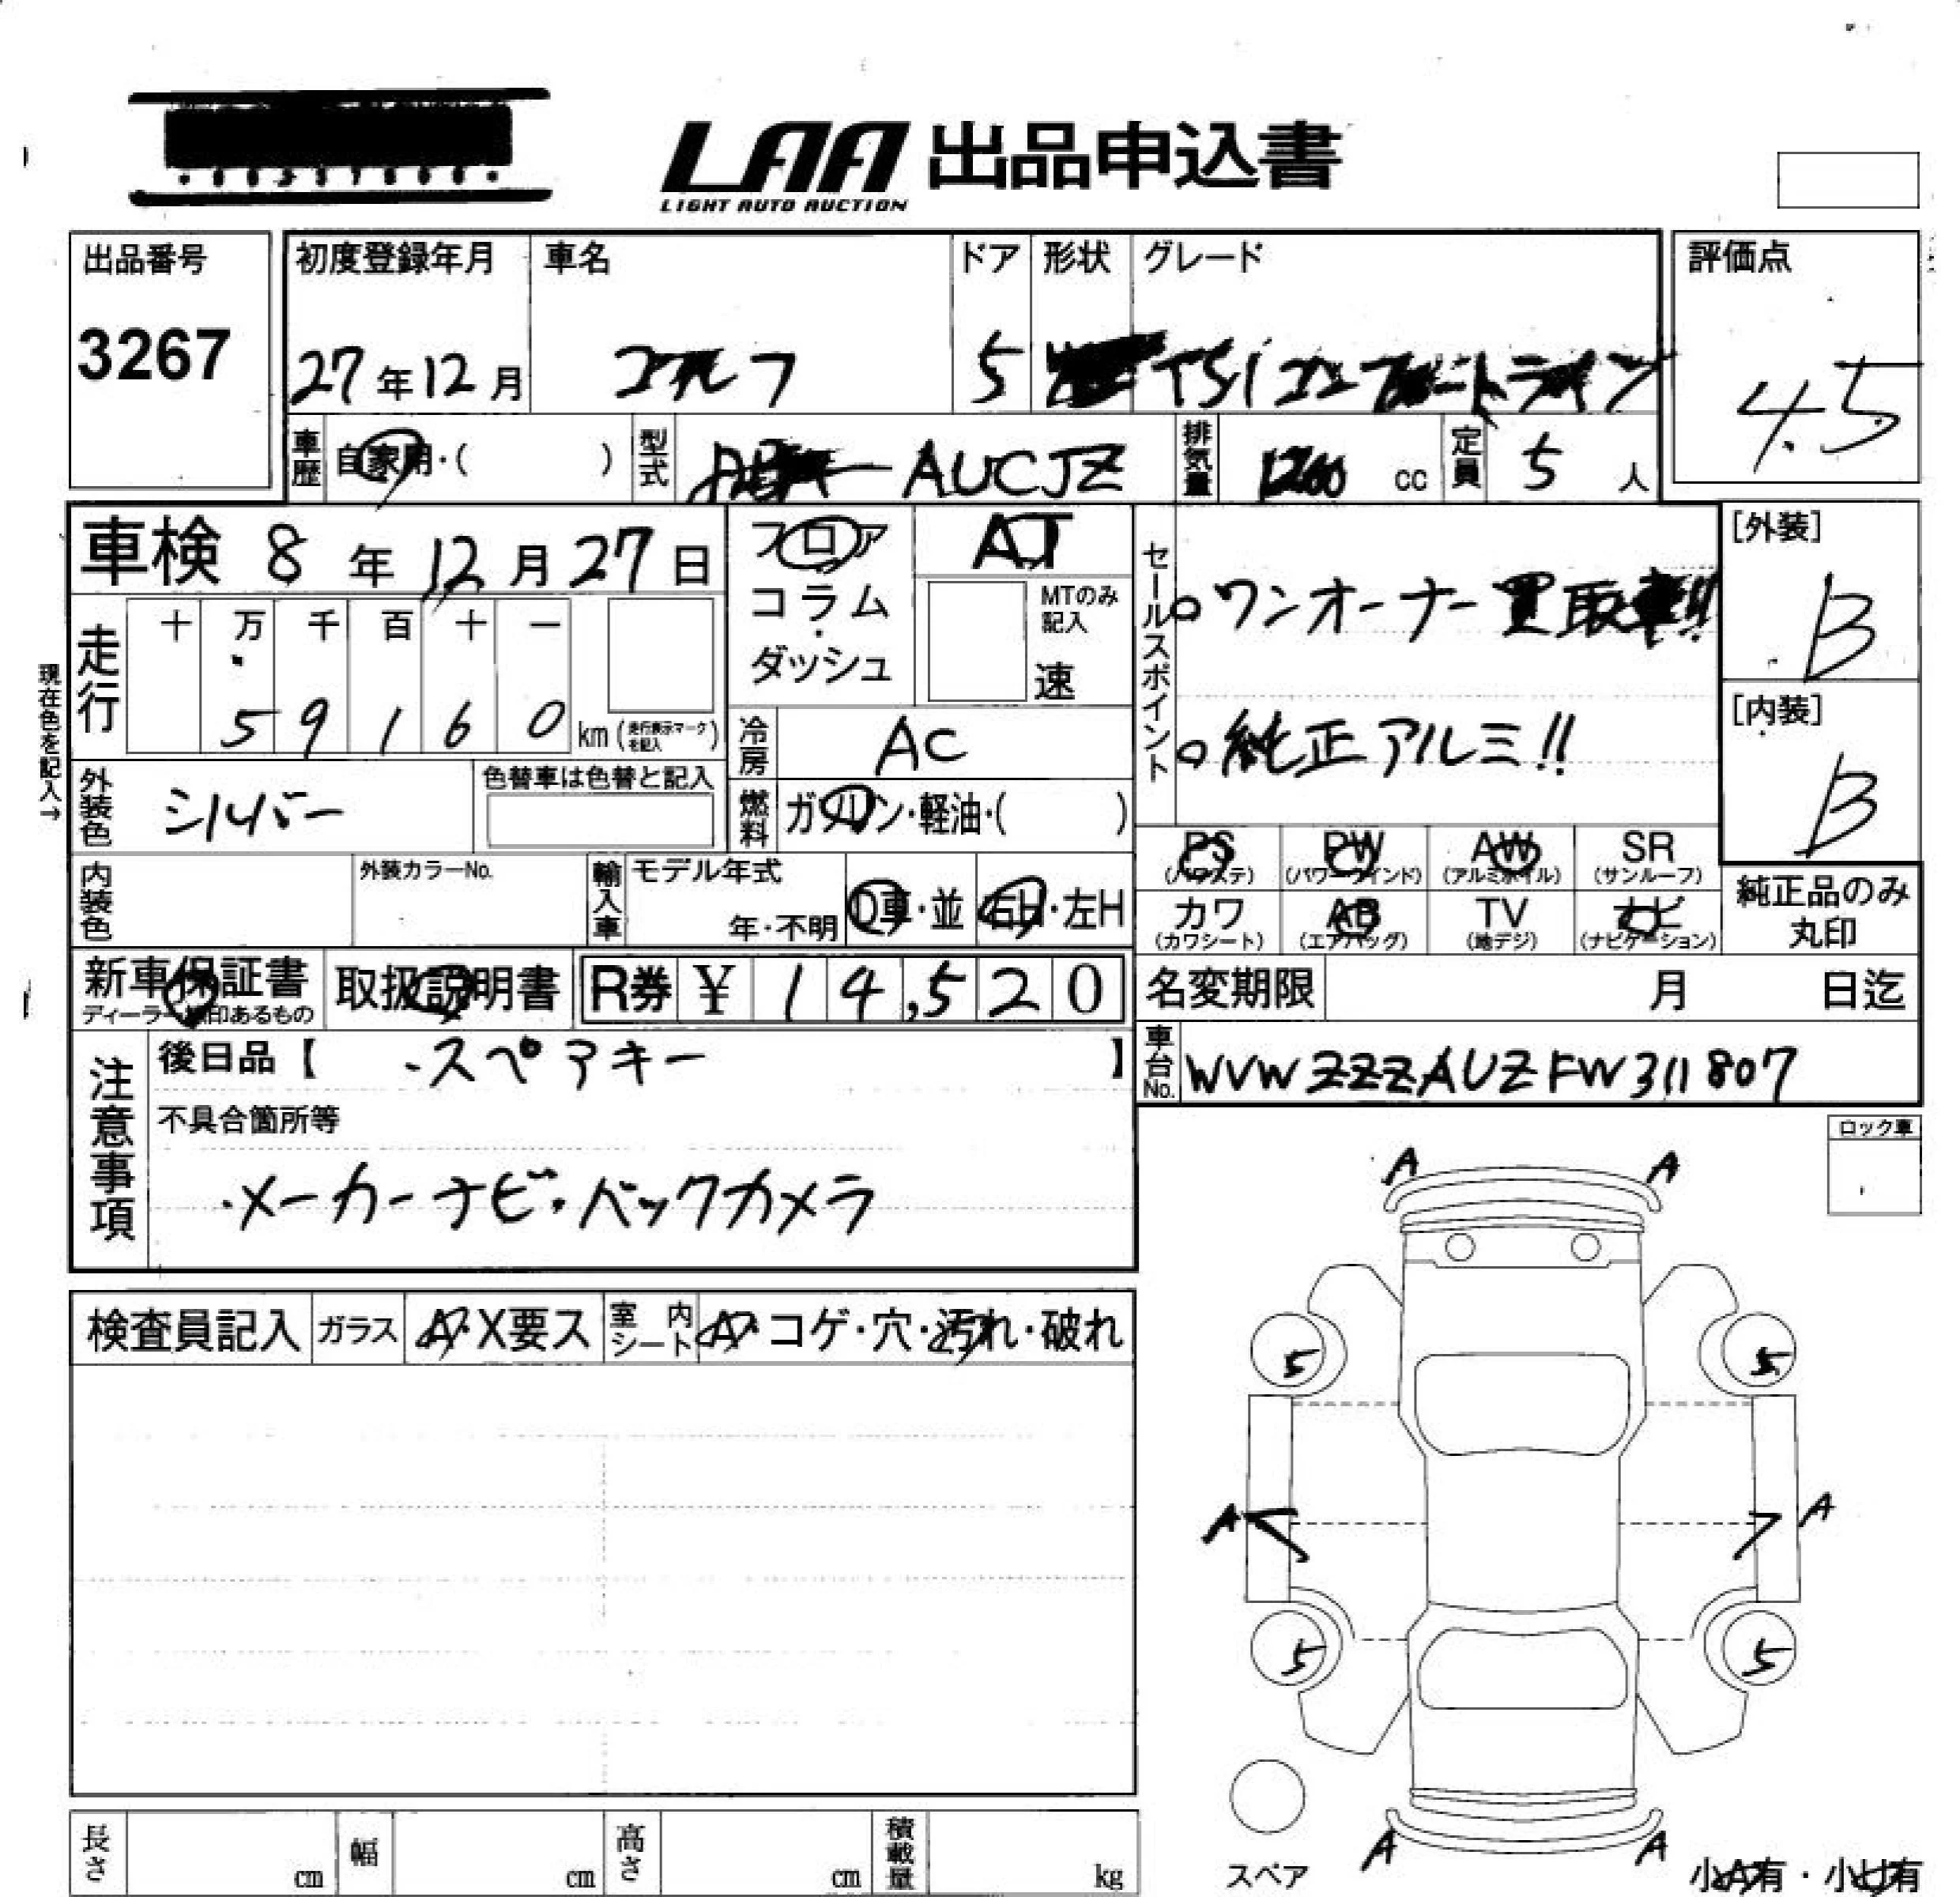 LAA 出品申込書
LIGHT AUTO AUCTION
出品番号
3267
初度登録年月 車名 ドア 形状 グレード
27年12月 ゴルフ 5 TSIコンフォートライン
評価点
4.5
車歴 自家用・( ) 型式 AUCJZ 排気量 1200 cc 定員 5 人
車検 8年12月27日
フロア
コラム
・
ダッシュ
AT
MTのみ
記入
速
セールスポイント
○ワンオーナー買取車!!
○純正アルミ!!
[外装]
B
[内装]
B
現在色を記入→
走行 十 万 千 百 十 一
5 9 1 6 0 km (走行表示マークを記入)
冷房 AC
外装色 シルバー
色替車は色替と記入
燃料 ガソリン・軽油・( )
PS (パワステ) PW (パワーウインド) AW (アルミホイル) SR (サンルーフ)
カワ (カワシート) AB (エアバッグ) TV (地デジ) ナビ (ナビゲーション)
純正品のみ
丸印
内装色 外装カラーNo. 輸入車 モデル年式
年・不明 D車・並 右H・左H
新車保証書
ディーラー 印あるもの
取扱説明書 R券 ¥ 14,520
名変期限 月 日迄
車台No. WVWZZZAUZFW311807
注意事項
後日品【 ・スペアキー 】
不具合箇所等
・メーカーナビ・バックカメラ
ロック車
検査員記入 ガラス A・X要ス 室内シート A・コゲ・穴・汚れ・破れ
A A
5 5
A A
5 5
A A
スペア
小A有・小U有
長さ cm 幅 cm 高さ cm 積載量 kg